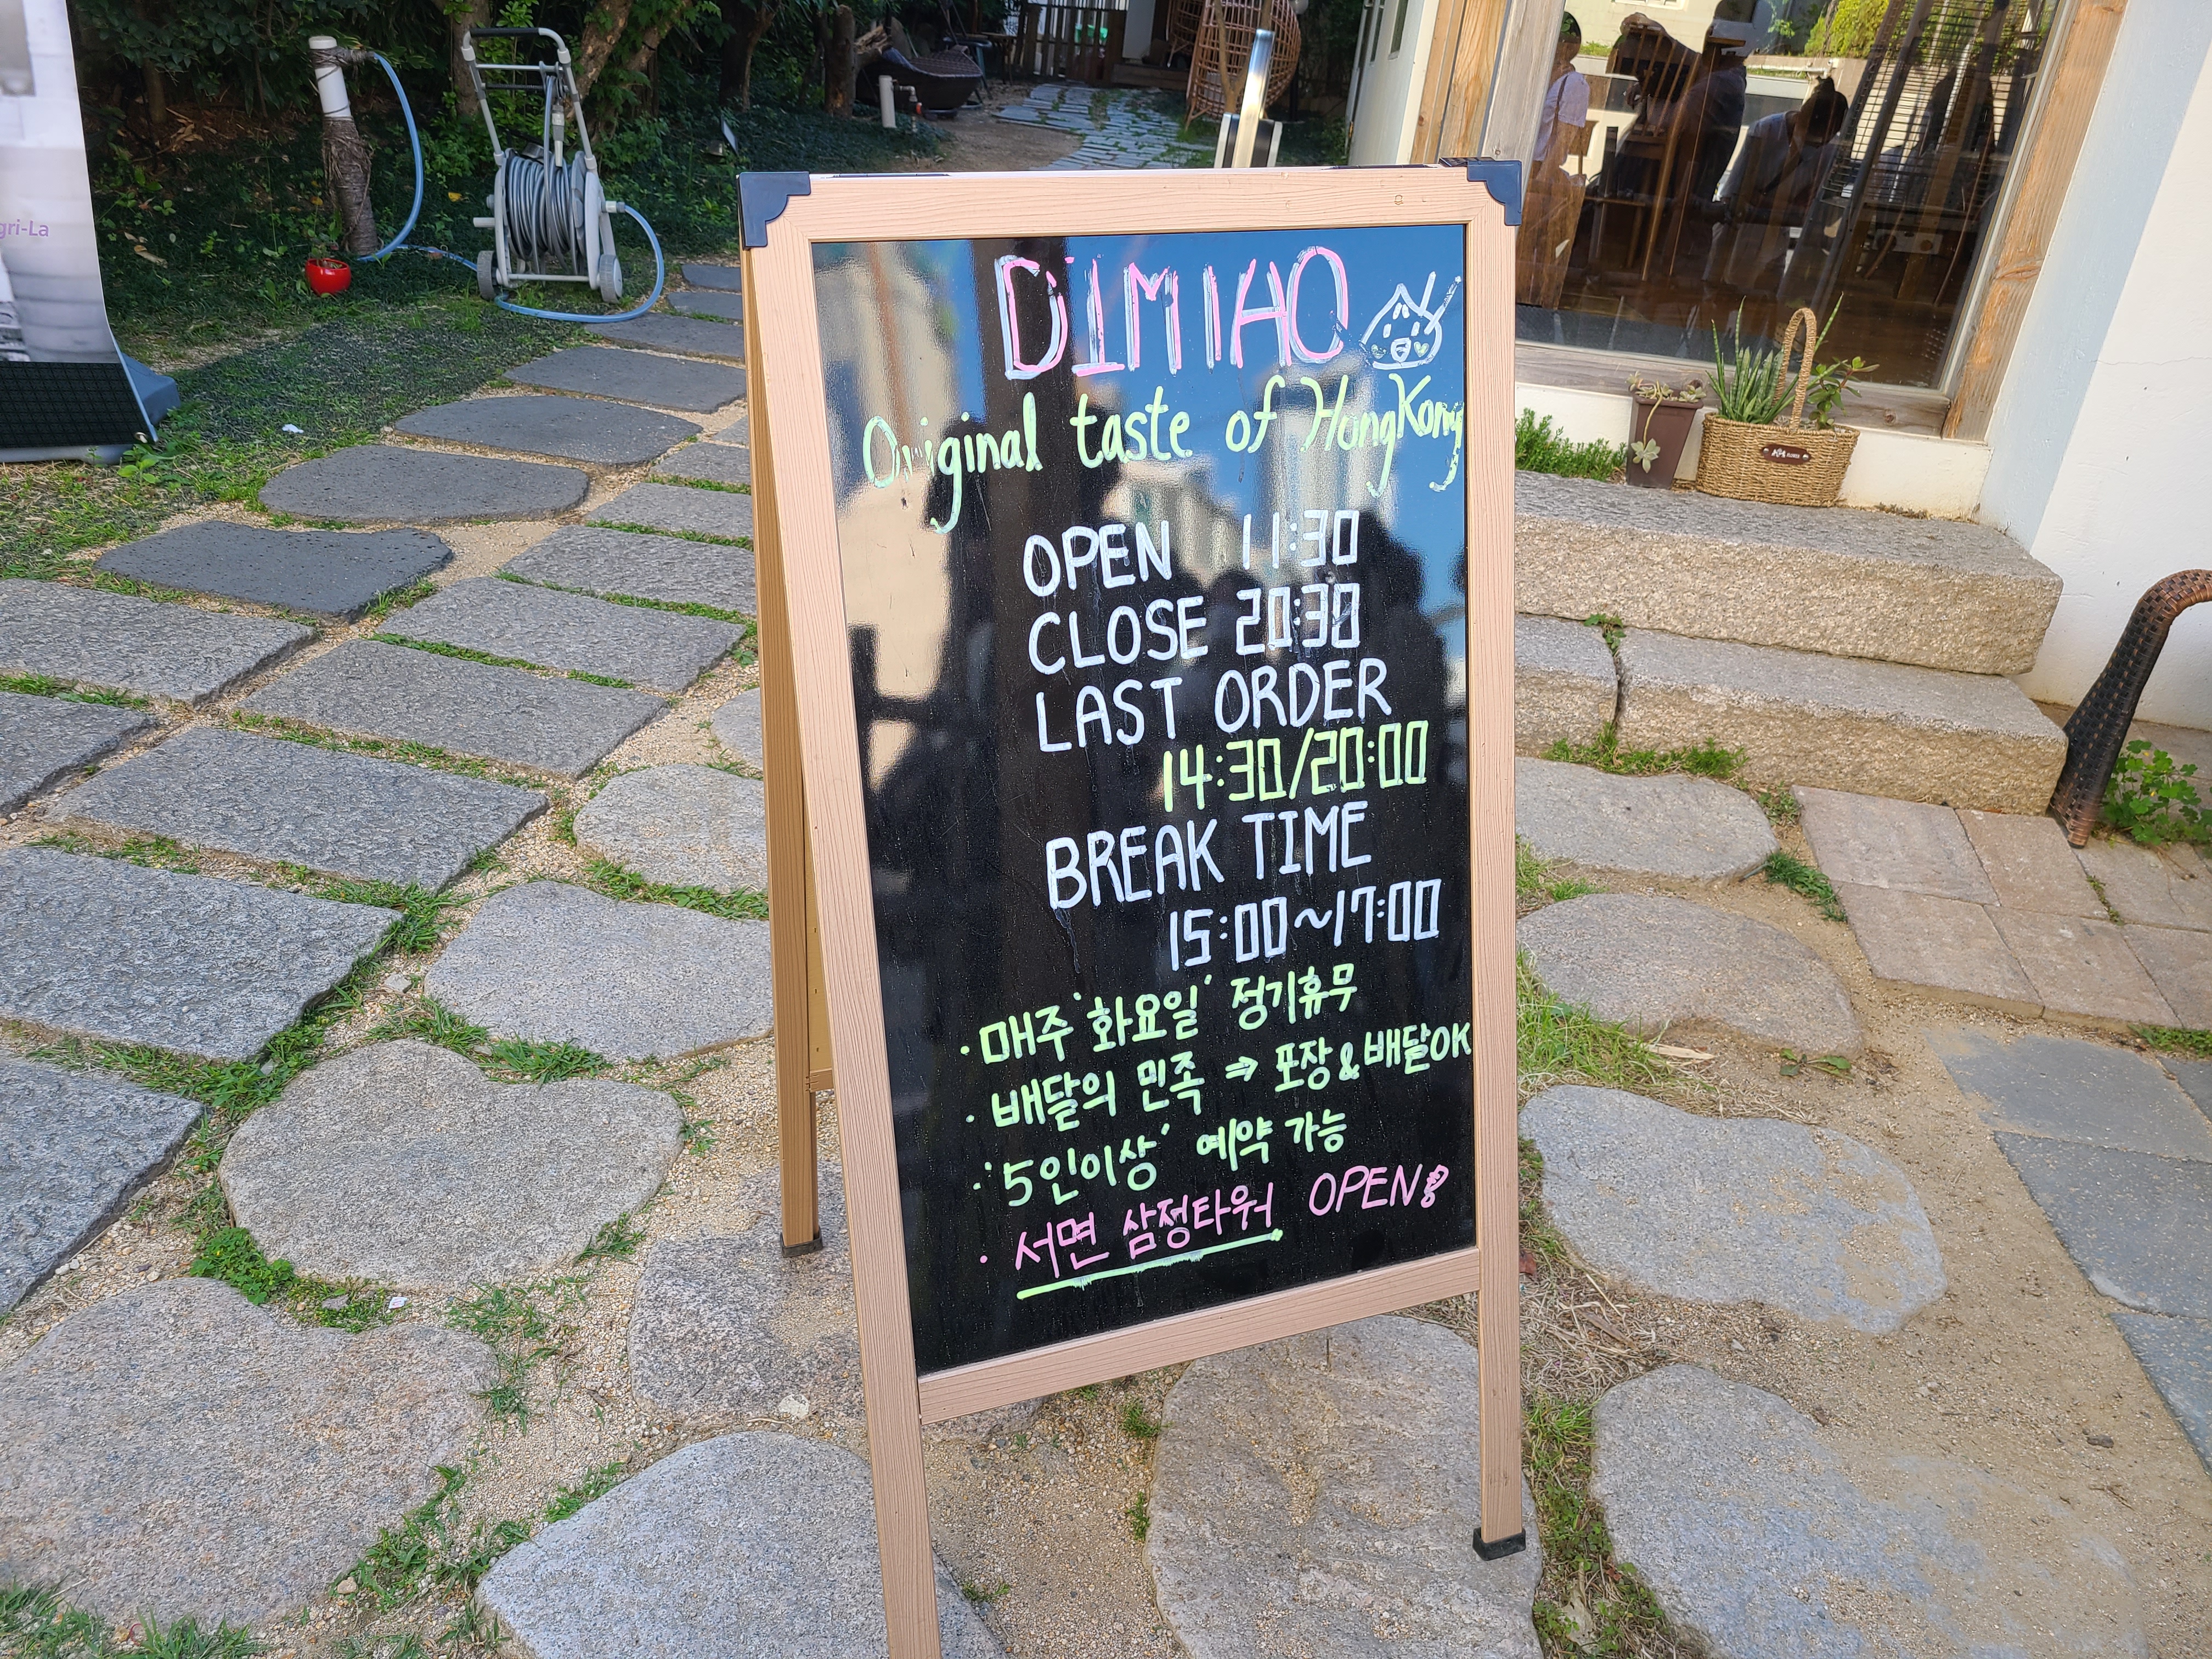 gri-La
DIMIAO
Original taste of HongKong
OPEN 11:30
CLOSE 20:30
LAST ORDER
14:30/20:00
BREAK TIME
15:00~17:00
· 매주 '화요일' 정기휴무
· 배달의 민족 ⇒ 포장 & 배달OK
· '5인이상' 예약 가능
· 서면 삼정타워 OPEN!